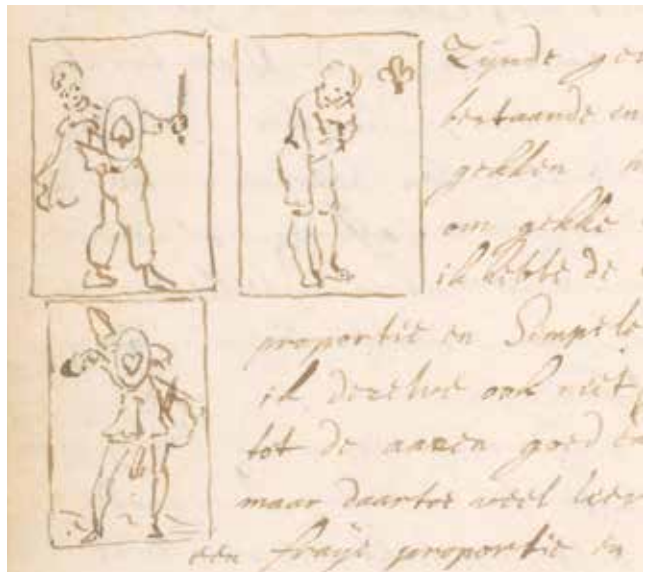 Zijnde ge
bestaande en
gekken
om gekke
ik hebbe de
proportie en Simpele
ik dezelve ook niet
tot de aazen goed
maar daartoe weel liever
een fraije proportie en